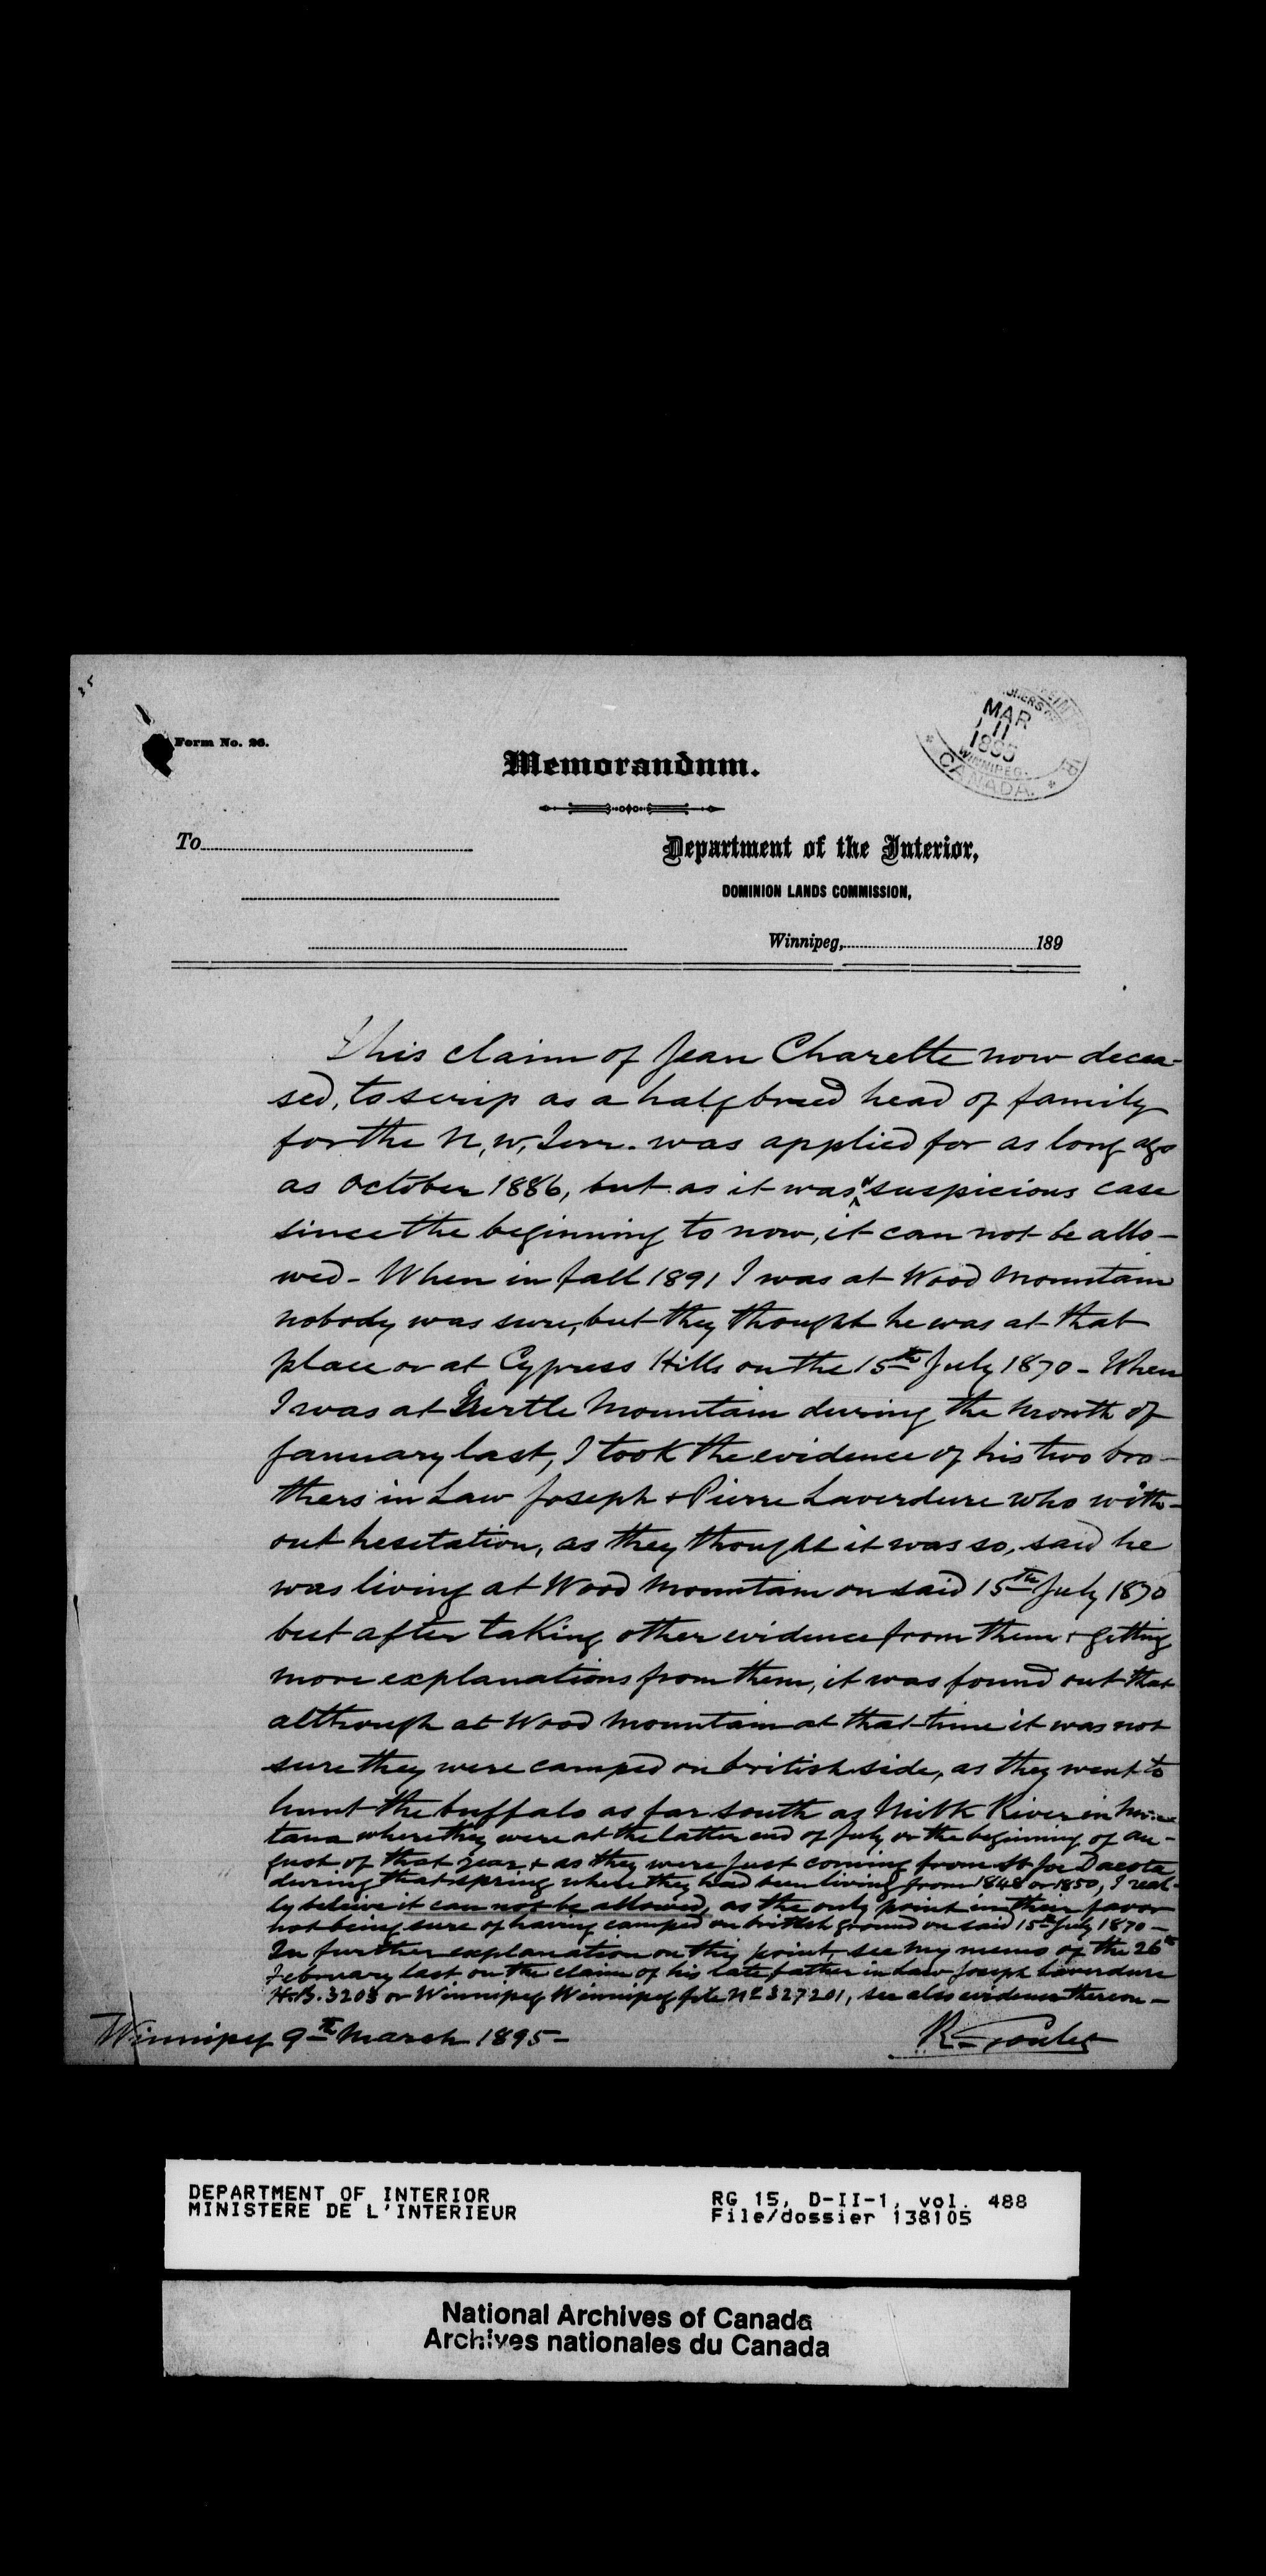 Form No. 26.
MAR
11
1895
WINNIPEG.
* CANADA. *
Memorandum.
To
Department of the Interior,
DOMINION LANDS COMMISSION,
Winnipeg, 189
This claim of Jean Charette now decea-
sed, to scrip as a halfbreed head of family
for the N, W, Terr. was applied for as long ago
as October 1886, but as it was a suspicious case
since the beginning to now, it can not be allo-
wed - When in fall 1891 I was at Wood Mountain
nobody was sure, but they thought he was at that
place or at Cypress Hills on the 15th July 1870 - When
I was at Turtle Mountain during the month of
January last, I took the evidence of his two bro-
thers in Law Joseph & Pierre Laverdure who with-
out hesitation, as they thought it was so, said he
was living at Wood Mountain on said 15th July 1870
but after taking other evidence from them & getting
more explanations from them, it was found out that
although at Wood Mountain at that time it was not
sure they were camped on british side, as they went to
hunt the buffalo as far south as Milk River in Mon-
tana where they were at the latter end of July or the beginning of au-
gust of that year & as they were just coming from St Joe Dacota
during that spring where they had been living from 1848 or 1850, I real-
ly believe it can not be allowed, as the only point in their favor
not being sure of having camped on british ground on said 15th July 1870 -
In further explanation on this point, see my memo of the 26th
February last on the claim of his late father in Law Joseph Laverdure
H.B. 3208 or Winnipeg Winnipeg file No 327201, see also evidence thereon -
Winnipeg 9th March 1895 -
R Goulet
DEPARTMENT OF INTERIOR
MINISTERE DE L'INTERIEUR
RG 15, D-II-1, vol. 488
File/dossier 138105
National Archives of Canada
Archives nationales du Canada